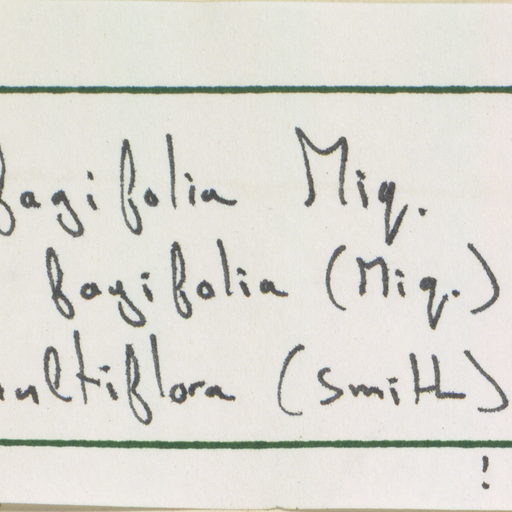 fagifolia Miq.
fagifolia (Miq.)
multiflora (Smith)
!